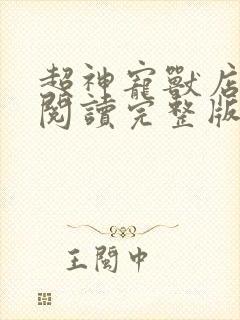 超神寵獸店
閱讀完整版
王閩中